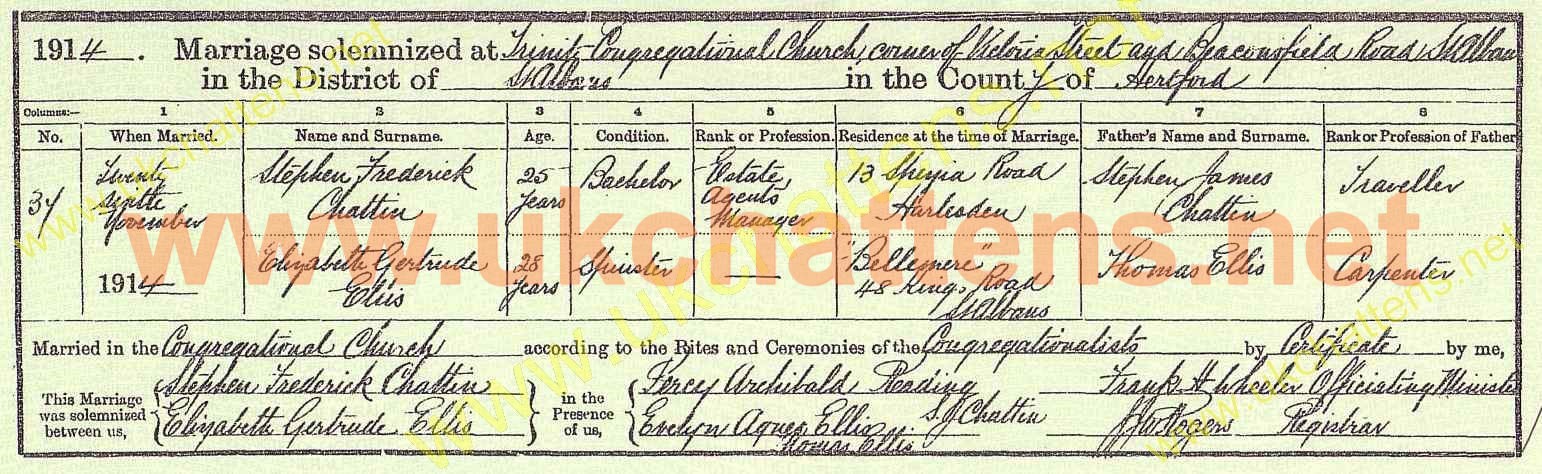 1914. Marriage solemnized at Trinity Congregational Church, corner of Victoria Street and Beaconsfield Road St Albans
in the District of St Albans in the County of Hertford
Columns:— 1 2 3 4 5 6 7 8
No. When Married. Name and Surname. Age. Condition. Rank or Profession. Residence at the time of Marriage. Father's Name and Surname. Rank or Profession of Father
Twenty Stephen Frederick 25 Bachelor Estate 13 Road Stephen James Traveller
34 sixth Chatten years Agents Harlesden Chatten
November Manager
Elizabeth Gertrude 28 Spinster — "Bellemere" Thomas Ellis Carpenter
1914 Ellis years 48 Kings Road
St Albans
Married in the Congregational Church according to the Rites and Ceremonies of the Congregationalists by Certificate by me,
This Marriage was solemnized between us,
Stephen Frederick Chatten
Elizabeth Gertrude Ellis
in the Presence of us,
Percy Archibald Reading
Evelyn Agnes Ellis S. J. Chatten
Thomas Ellis
Frank H Wheeler Officiating Minister
Rogers Registrar
www.ukchattens.net
www.ukchattens.net
www.ukchattens.net
www.ukchattens.net